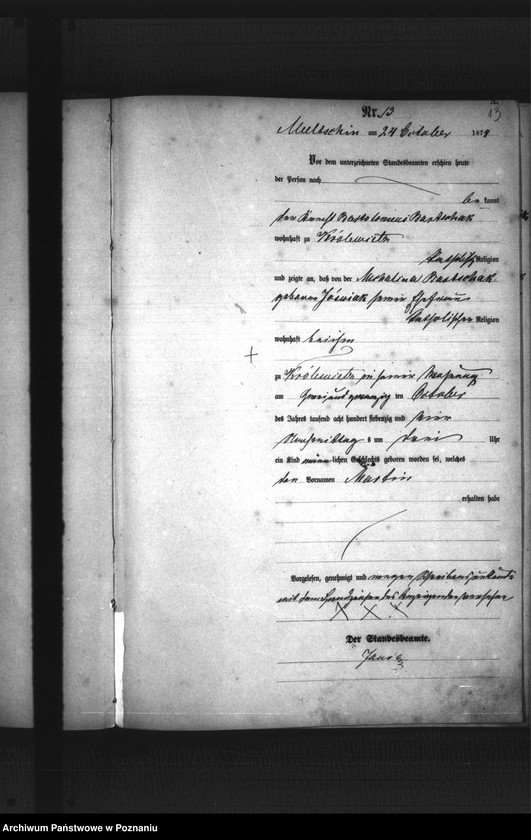 13
Nr. 13
Meltschin am 24 October 1874
Vor dem unterzeichneten Standesbeamten erschien heute
der Person nach
be kannt
der Knecht Bartolomeus Bartschak
wohnhaft zu Królewietz
katholischer Religion
und zeigte an, daß von der Michalina Bartschak
geborenen Józwiak seiner Ehefrau
katholischer Religion
wohnhaft bei ihm
zu in seiner Wohnung
am zwei und zwanzig ten October
des Jahres tausend acht hundert siebenzig und vier
Nachmittag s um drei Uhr
ein Kind männ lichen Geschlechts geboren worden sei, welches
den Vornamen Martin
erhalten habe
Vorgelesen, genehmigt und wegen Schreibensunkunde
mit dem Handzeichen des Anzeigenden versehen
X X X
Der Standesbeamte.
Archiwum Państwowe w Poznaniu